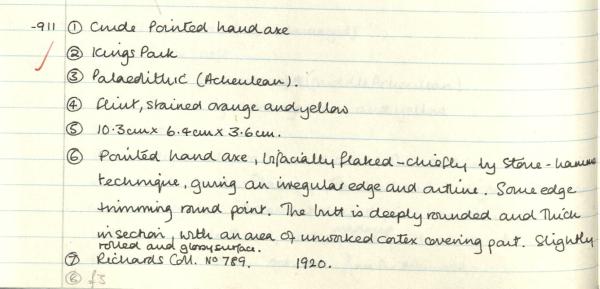 -911 ① Crude Pointed hand axe
② Kings Park
③ Palaeolithic (Acheulean).
④ Flint, stained orange and yellow
⑤ 10.3cm x 6.4cm x 3.6cm.
⑥ Pointed hand axe, bifacially flaked - chiefly by stone-hammer
technique, giving an irregular edge and outline. Some edge
trimming round point. The butt is deeply rounded and thick
in section, with an area of unworked cortex covering part. Slightly
rolled and glossy surface.
⑦ Richards Coll. No 789. 1920.
⑧ f3